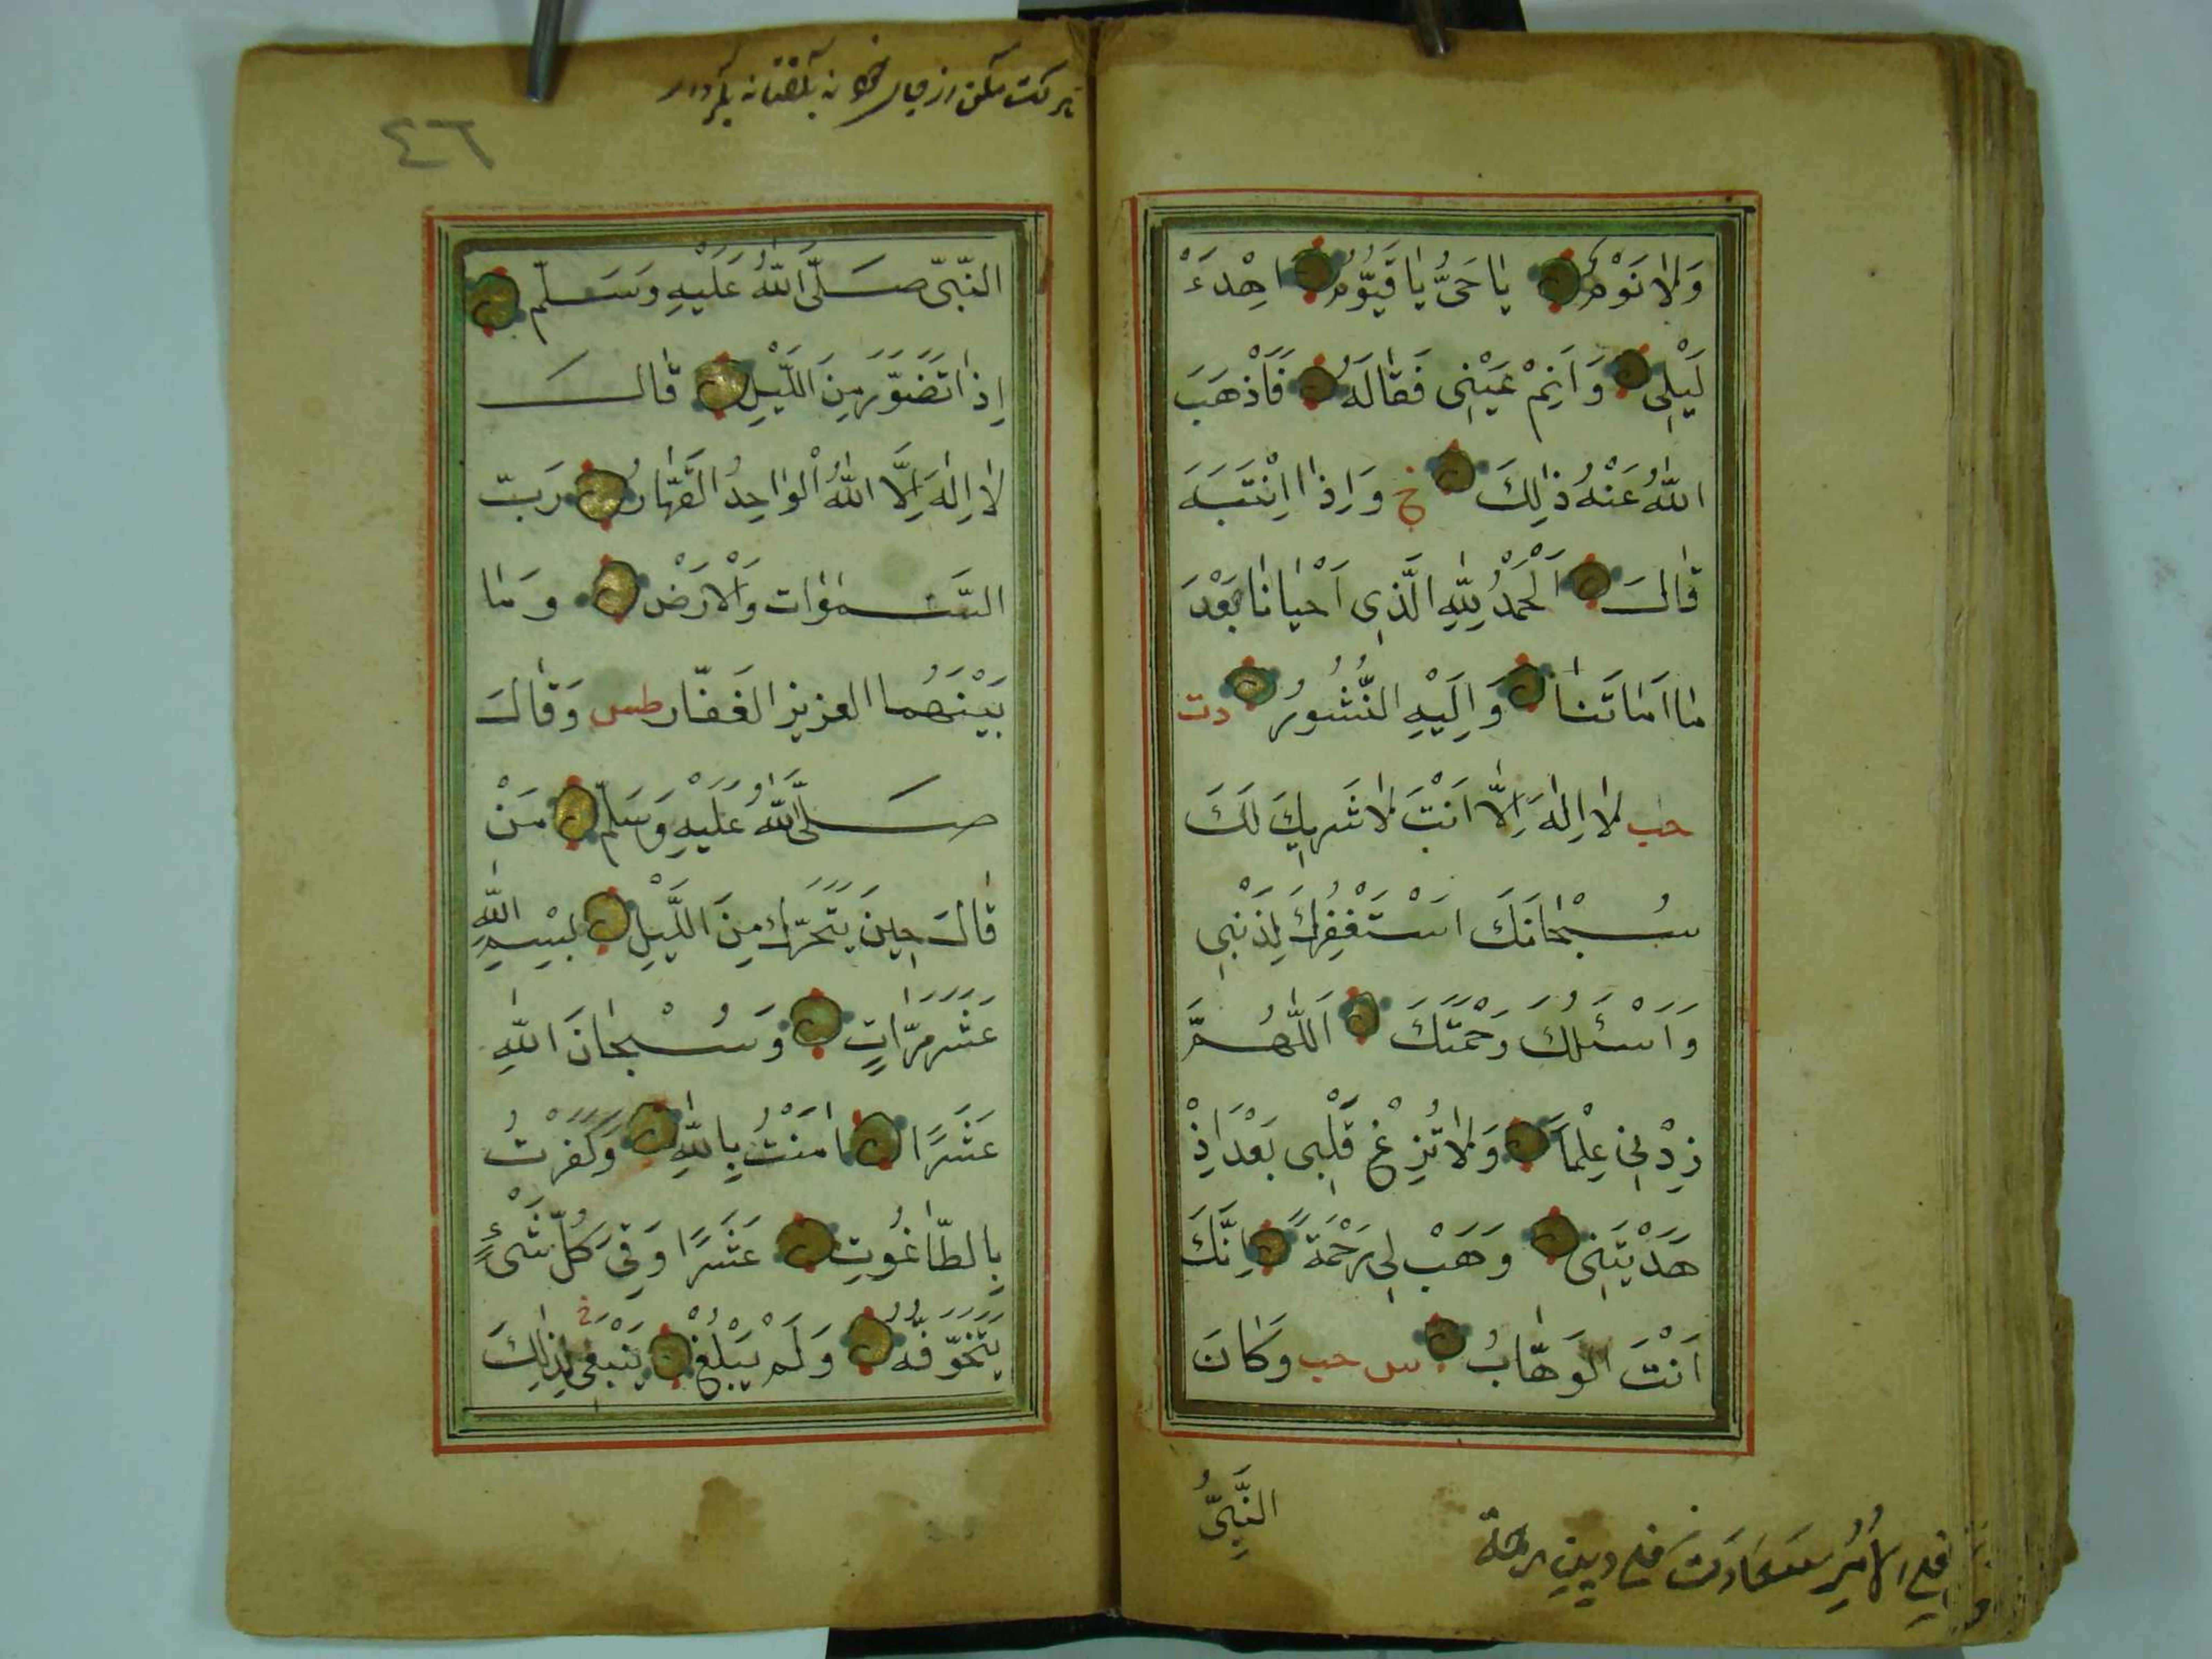 وَلَا نَوْمٌ يَا حَيُّ يَا قَيُّومُ اَهْدِءْ
لَيْلِى وَاَنِمْ عَيْنِى فَقَالَهُ فَاَذْهَبَ
اللّٰهُ عَنْهُ ذٰلِكَ خ وَاِذَا اِنْتَبَهَ
قَالَ اَلْحَمْدُ لِلّٰهِ الَّذِى اَحْيَانَا بَعْدَ
مَا اَمَاتَنَا وَاِلَيْهِ النُّشُورُ دت
حب لَا اِلٰهَ اِلَّا اَنْتَ لَا شَرِيكَ لَكَ
سُبْحَانَكَ اَسْتَغْفِرُكَ لِذَنْبِى
وَاَسْئَلُكَ رَحْمَتَكَ اَللّٰهُمَّ
زِدْنِى عِلْمًا وَلَا تُزِغْ قَلْبِى بَعْدَ اِذْ
هَدَيْتَنِى وَهَبْ لِى رَحْمَةً اِنَّكَ
اَنْتَ الْوَهَّابُ س حب وَكَانَ
النَّبِىُّ
٤٦
النَّبِىّ صَلَّى اللّٰهُ عَلَيْهِ وَسَلَّمَ
اِذَا تَضَوَّرَ مِنَ اللَّيْلِ قَالَ
لَا اِلٰهَ اِلَّا اللّٰهُ الْوَاحِدُ الْقَهَّارُ رَبّ
السَّمٰوَات وَالْاَرْض وَمَا
بَيْنَهُمَا العزيز الغَفَّار طس وَقَالَ
صَلَّى اللّٰهُ عَلَيْهِ وَسَلَّمَ مَنْ
قَالَ حِينَ يَتَحَرَّك مِنَ اللَّيْلِ بِسْمِ اللّٰهِ
عَشْرَ مَرَّاتٍ وَسُبْحَانَ اللّٰهِ
عَشْرًا اٰمَنْتُ بِاللّٰهِ وَكَفَرْتُ
بِالطَّاغُوتِ عَشْرًا وُقِىَ كُلّ شَىْءٍ
يَتَخَوَّفُهُ وَلَمْ يَبْلُغْ يَنْبَغِى خ لِذٰلِكَ